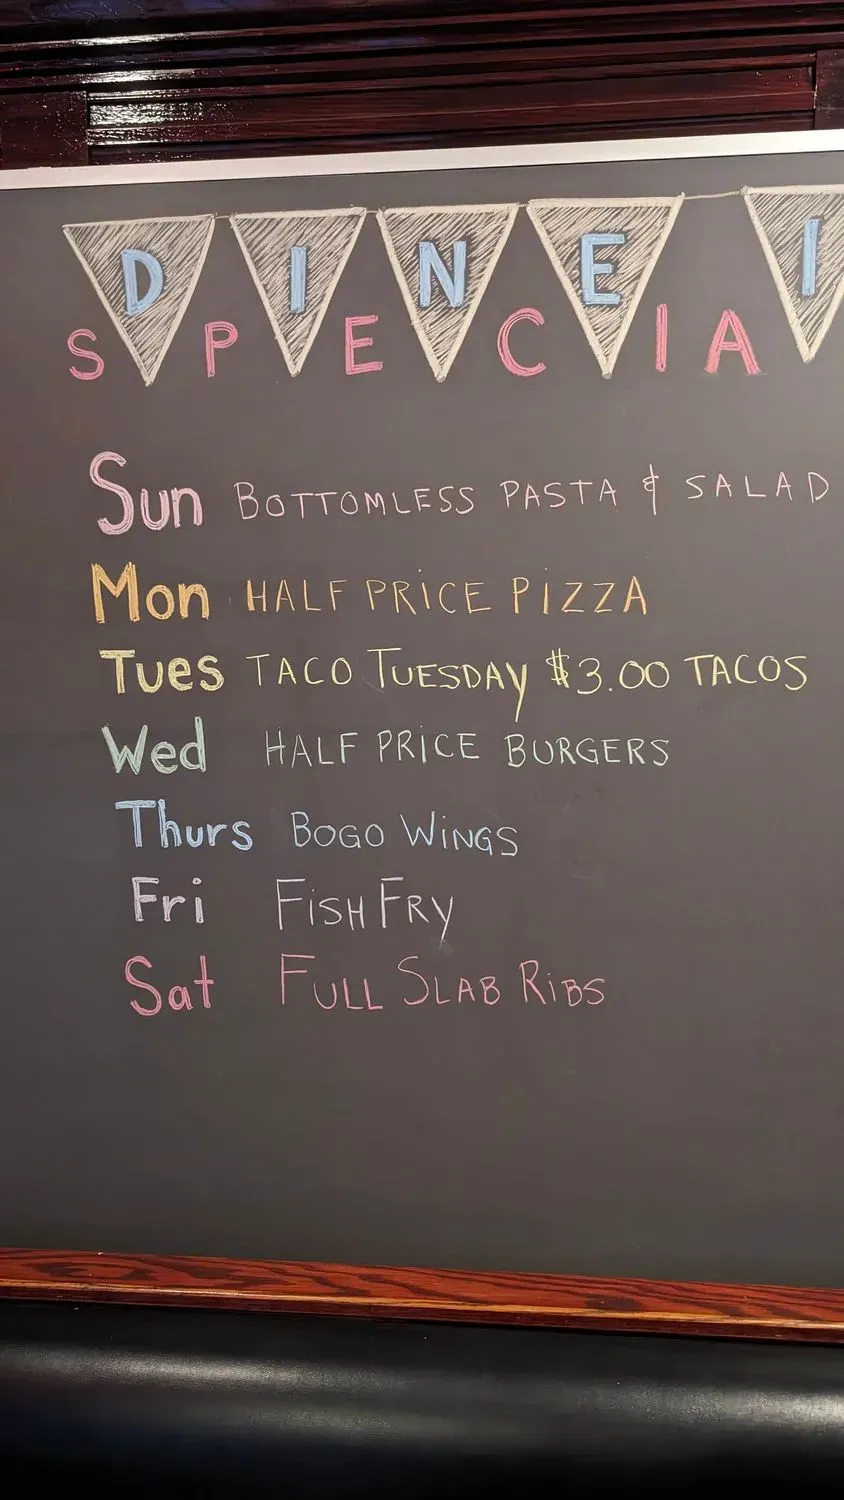 DINE I
SPECIA
Sun BOTTOMLESS PASTA & SALAD
Mon HALF PRICE PIZZA
Tues TACO TUESDAY $3.00 TACOS
Wed HALF PRICE BURGERS
Thurs BOGO WINGS
Fri FISH FRY
Sat FULL SLAB RIBS